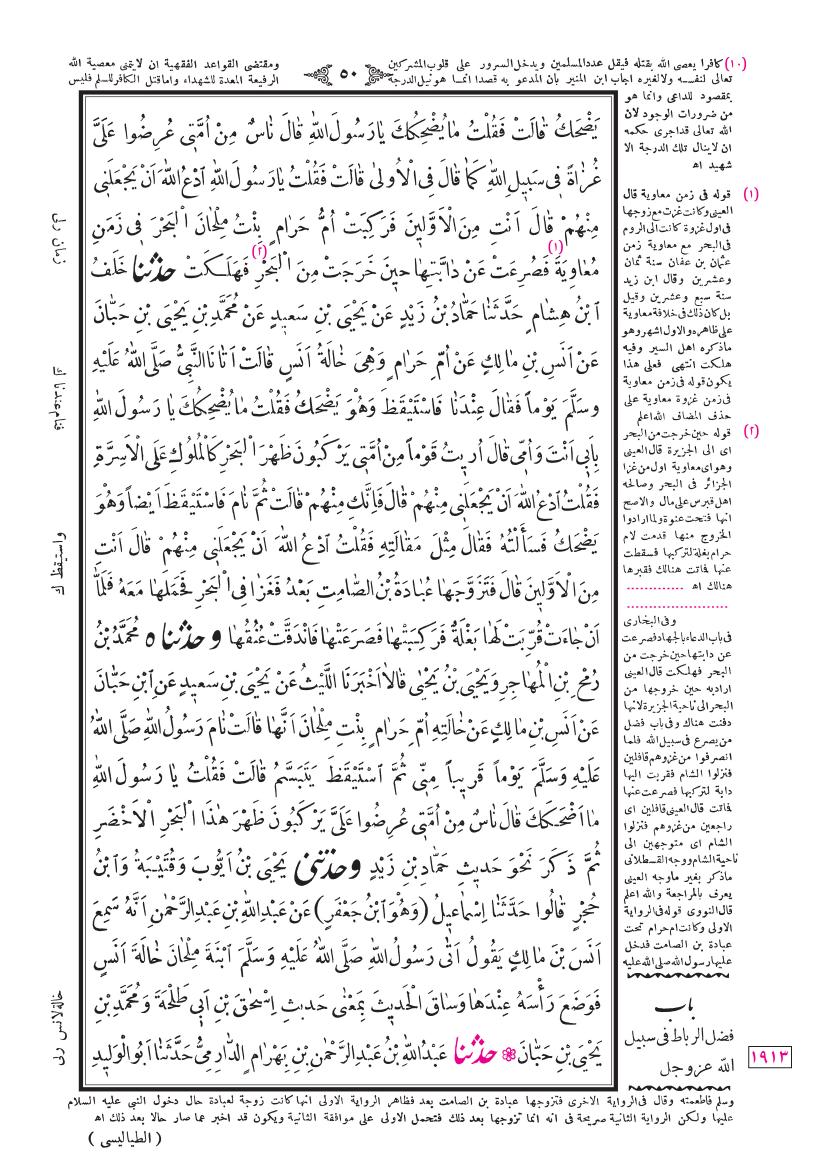 (١٠) كافرا يعصى الله بقتله فيقل عدد المسلمين ويدخل السرور على قلوب المشركين
تعالى لنفسه ولا لغيره اجاب ابن المنير بان المدعو به قصدا انما هو نيل الدرجة
٥٠
ومقتضى القواعد الفقهية ان لا يتمنى معصية الله
الرفيعة المعدة للشهداء واما قتل الكافر للمسلم فليس
بمقصود للداعى وانما هو
من ضرورات الوجود لان
الله تعالى قد اجرى حكمه
ان لا ينال تلك الدرجة الا
شهيد اه
يَضْحَكُ قَالَتْ فَقُلْتُ مَا يُضْحِكُكَ يَا رَسُولَ اللهِ قَالَ نَاسٌ مِنْ اُمَّتِى عُرِضُوا عَلَىَّ
غُزَاةً فِى سَبِيلِ اللهِ كَمَا قَالَ فِى الْاُولٰى قَالَتْ فَقُلْتُ يَا رَسُولَ اللهِ ادْعُ اللهَ اَنْ يَجْعَلَنِى
مِنْهُمْ قَالَ اَنْتِ مِنَ الْاَوَّلِينَ فَرَكِبَتْ اُمُّ حَرَامٍ بِنْتُ مِلْحَانَ الْبَحْرَ فِى زَمَنِ
مُعَاوِيَةَ (١) فَصُرِعَتْ عَنْ دَابَّتِهَا حِينَ خَرَجَتْ مِنَ الْبَحْرِ (٢) فَهَلَكَتْ حدثنا خَلَفُ
ابْنُ هِشَامٍ حَدَّثَنَا حَمَّادُ بْنُ زَيْدٍ عَنْ يَحْيَى بْنِ سَعِيدٍ عَنْ مُحَمَّدِ بْنِ يَحْيَى بْنِ حَبَّانَ
عَنْ اَنَسِ بْنِ مَالِكٍ عَنْ اُمِّ حَرَامٍ وَهِىَ خَالَةُ اَنَسٍ قَالَتْ اَتَانَا النَّبِىُّ صَلَّى اللهُ عَلَيْهِ
وَسَلَّمَ يَوْماً فَقَالَ عِنْدَنَا فَاسْتَيْقَظَ وَهُوَ يَضْحَكُ فَقُلْتُ مَا يُضْحِكُكَ يَا رَسُولَ اللهِ
بِاَبِى اَنْتَ وَاُمِّى قَالَ اُرِيتُ قَوْماً مِنْ اُمَّتِى يَرْكَبُونَ ظَهْرَ الْبَحْرِ كَالْمُلُوكِ عَلَى الْاَسِرَّةِ
فَقُلْتُ ادْعُ اللهَ اَنْ يَجْعَلَنِى مِنْهُمْ قَالَ فَاِنَّكِ مِنْهُمْ قَالَتْ ثُمَّ نَامَ فَاسْتَيْقَظَ اَيْضاً وَهُوَ
يَضْحَكُ فَسَاَلْتُهُ فَقَالَ مِثْلَ مَقَالَتِهِ فَقُلْتُ ادْعُ اللهَ اَنْ يَجْعَلَنِى مِنْهُمْ قَالَ اَنْتِ
مِنَ الْاَوَّلِينَ قَالَ فَتَزَوَّجَهَا عُبَادَةُ بْنُ الصَّامِتِ بَعْدُ فَغَزَا فِى الْبَحْرِ فَحَمَلَهَا مَعَهُ فَلَمَّا
اَنْ جَاءَتْ قُرِّبَتْ لَهَا بَغْلَةٌ فَرَكِبَتْهَا فَصَرَعَتْهَا فَانْدَقَّتْ عُنُقُهَا وحدثناه مُحَمَّدُ بْنُ
رُمْحِ بْنِ الْمُهَاجِرِ وَيَحْيَى بْنُ يَحْيٰى قَالَا اَخْبَرَنَا اللَّيْثُ عَنْ يَحْيَى بْنِ سَعِيدٍ عَنِ ابْنِ حَبَّانَ
عَنْ اَنَسِ بْنِ مَالِكٍ عَنْ خَالَتِهِ اُمِّ حَرَامٍ بِنْتِ مِلْحَانَ اَنَّهَا قَالَتْ نَامَ رَسُولُ اللهِ صَلَّى اللهُ
عَلَيْهِ وَسَلَّمَ يَوْماً قَرِيباً مِنِّى ثُمَّ اسْتَيْقَظَ يَتَبَسَّمُ قَالَتْ فَقُلْتُ يَا رَسُولَ اللهِ
مَا اَضْحَكَكَ قَالَ نَاسٌ مِنْ اُمَّتِى عُرِضُوا عَلَىَّ يَرْكَبُونَ ظَهْرَ هٰذَا الْبَحْرِ الْاَخْضَرِ
ثُمَّ ذَكَرَ نَحْوَ حَدِيثِ حَمَّادِ بْنِ زَيْدٍ وحدثنى يَحْيَى بْنُ اَيُّوبَ وَقُتَيْبَةُ وَابْنُ
حُجْرٍ قَالُوا حَدَّثَنَا اِسْمَاعِيلُ (وَهُوَ ابْنُ جَعْفَرٍ) عَنْ عَبْدِ اللهِ بْنِ عَبْدِ الرَّحْمٰنِ اَنَّهُ سَمِعَ
اَنَسَ بْنَ مَالِكٍ يَقُولُ اَتٰى رَسُولُ اللهِ صَلَّى اللهُ عَلَيْهِ وَسَلَّمَ ابْنَةَ مِلْحَانَ خَالَةَ اَنَسٍ
فَوَضَعَ رَأْسَهُ عِنْدَهَا وَسَاقَ الْحَدِيثَ بِمَعْنٰى حَدِيثِ اِسْحٰقَ بْنِ اَبِى طَلْحَةَ وَمُحَمَّدِ بْنِ
يَحْيَى بْنِ حَبَّانَ حدثنا عَبْدُ اللهِ بْنُ عَبْدِ الرَّحْمٰنِ بْنِ بَهْرَامِ الدَّارِمِىُّ حَدَّثَنَا اَبُو الْوَلِيدِ
(١) قوله فى زمن معاوية قال
العينى وكانت غزت مع زوجها
فى اول غزوة كانت الى الروم
فى البحر مع معاوية زمن
عثمان بن عفان سنة ثمان
وعشرين وقال ابن زيد
سنة سبع وعشرين وقيل
بل كان ذلك فى خلافة معاوية
على ظاهره والاول اشهر وهو
ما ذكره اهل السير وفيه
هلكت انتهى فعلى هذا
يكون قوله فى زمن معاوية
فى زمن غزوة معاوية على
حذف المضاف الله اعلم
(٢) قوله حين خرجت من البحر
اى الى الجزيرة قال العينى
وهو اى معاوية اول من غزا
الجزائر فى البحر وصالحه
اهل قبرس على مال والاصح
انها فتحت عنوة ولما ارادوا
الخروج منها قدمت لام
حرام بغلة لتركبها فسقطت
عنها فماتت هنالك فقبرها
هنالك اه
وفى البخارى
فى باب الدعاء بالجهاد فصرعت
عن دابتها حين خرجت من
البحر فهلكت قال العينى
اراد به حين خروجها من
البحر الى ناحية الجزيرة لانها
دفنت هناك وفى باب فضل
من يصرع فى سبيل الله فلما
انصرفوا من غزوهم قافلين
فنزلوا الشام فقربت اليها
دابة لتركبها فصرعت عنها
فماتت قال العينى قافلين اى
راجعين من غزوهم فنزلوا
الشام اى متوجهين الى
ناحية الشام ووجه القسطلانى
ما ذكر بغير ما وجه العينى
يعرف بالمراجعة والله اعلم
قال النووى قوله فى الرواية
الاولى وكانت ام حرام تحت
عبادة بن الصامت فدخل
عليها رسول الله صلى الله عليه
باب
فضل الرباط فى سبيل
الله عز وجل
١٩١٣
زمان رلى
واستيقظ ك
خالة لانس رلى
وسلم فاطعمته وقال فى الرواية الاخرى فتزوجها عبادة بن الصامت بعد فظاهر الرواية الاولى انها كانت زوجة لعبادة حال دخول النبى عليه السلام
عليها ولكن الرواية الثانية صريحة فى انه انما تزوجها بعد ذلك فتحمل الاولى على موافقة الثانية ويكون قد اخبر عما صار حالا بعد ذلك اه
( الطيالسى )